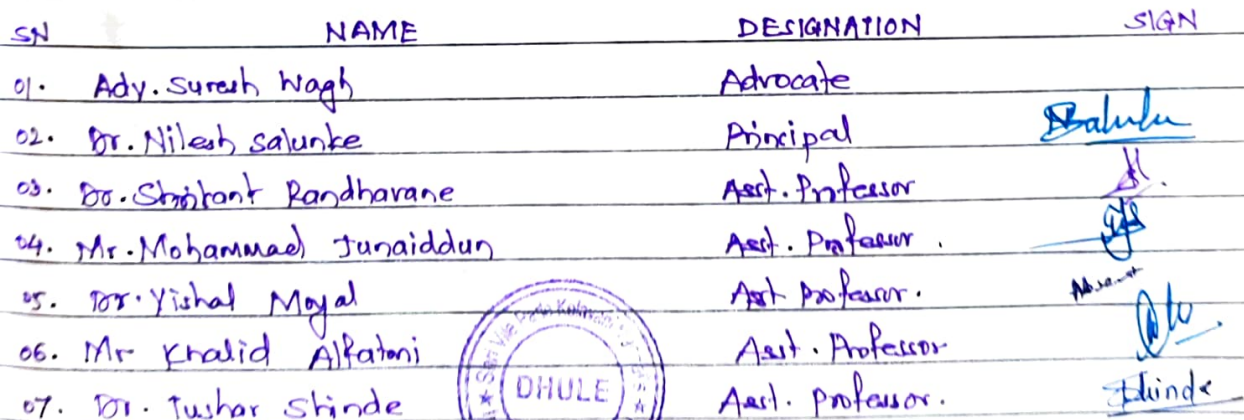 SN NAME DESIGNATION SIGN
01. Adv. Suresh Wagh Advocate
02. Dr. Nilesh Salunke Principal
03. Dr. Shrikant Randhavane Asst. Professor
04. Mr. Mohammad Junaiddun Asst. Professor.
05. Dr. Vishal Moyal Asst Professor. Absent
06. Mr Khalid Alfatani Asst. Professor
07. Dr. Tushar Shinde Asst. Professor. Shinde
DHULE